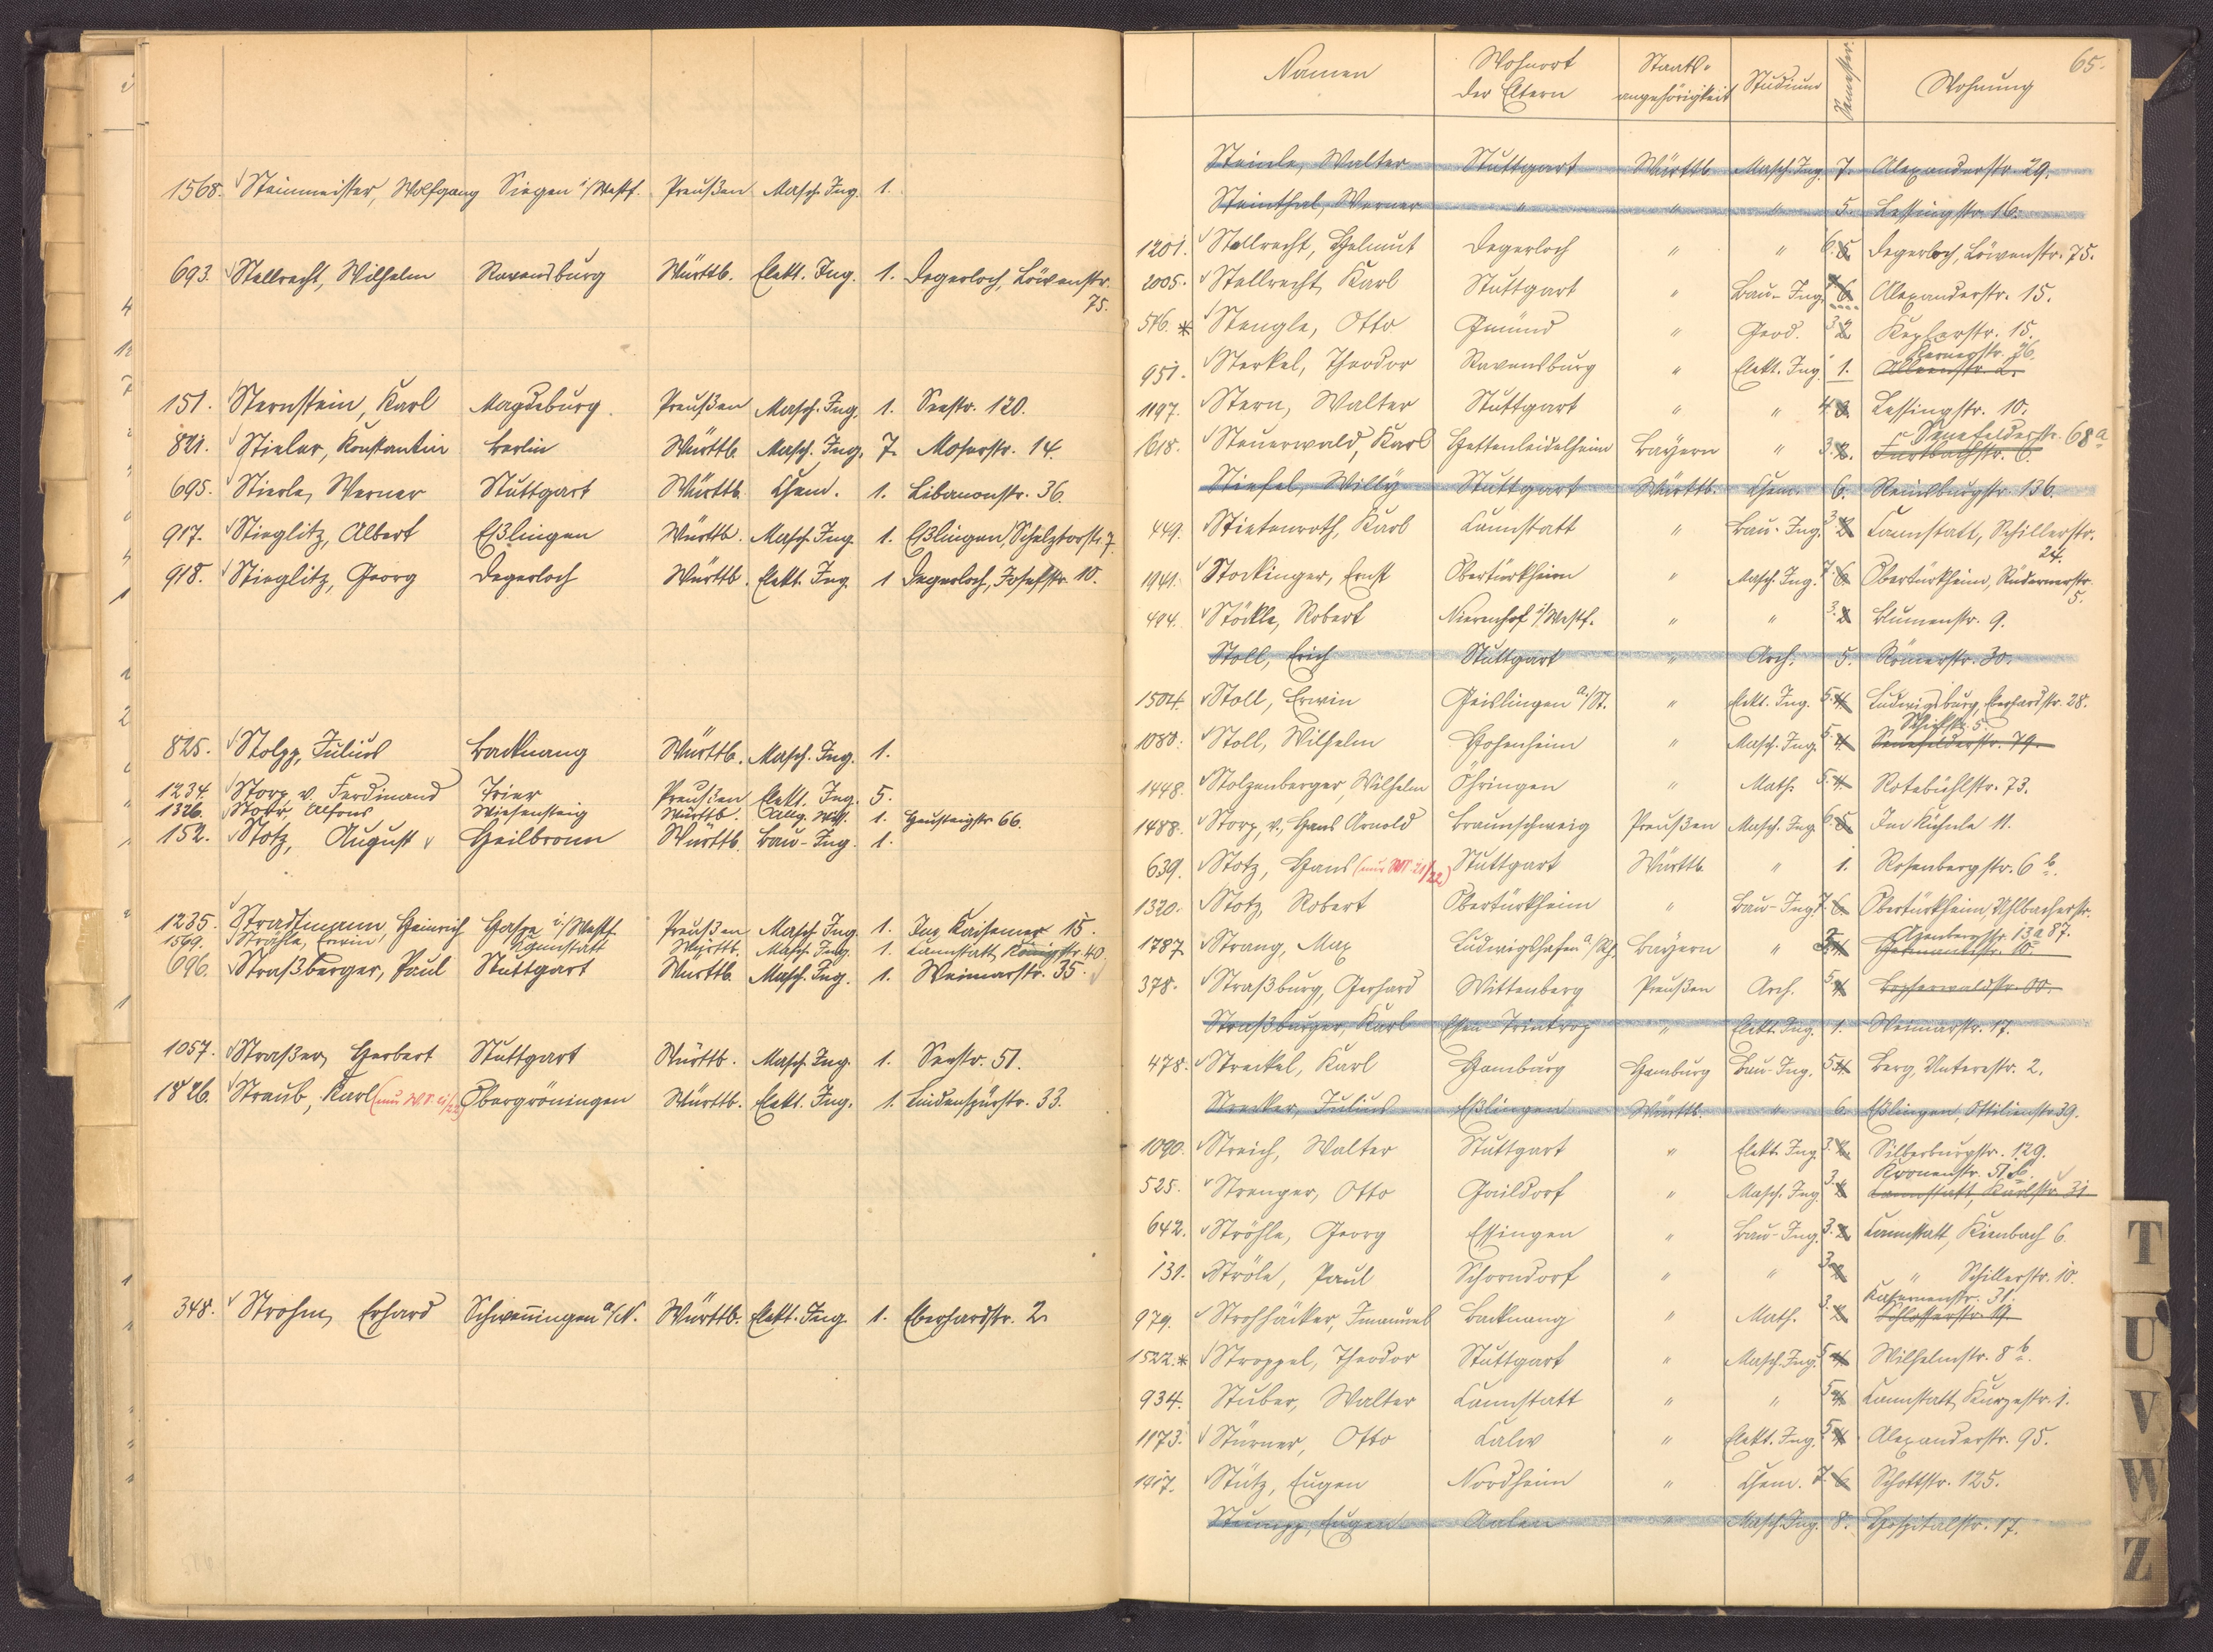 1568. Steinmeister, Wolfgang Siegen i/Westf. Preußen Masch. Ing. 1.
693. Stellrecht, Wilhelm Ravensburg Württb. Elekt. Ing. 1. Degerloch, Löwenstr. 75.
151. Sternstein, Karl Magdeburg. Preußen Masch. Ing. 1. Seestr. 120.
821. Stieler, Konstantin Berlin Württb. Masch. Ing. 7. Moserstr. 14.
695. Stierle, Werner Stuttgart Württb. Chem. 1. Libanonstr. 36.
917. Stieglitz, Albert Eßlingen Württb. Masch. Ing. 1. Eßlingen, Schelztorstr. 7.
918. Stieglitz, Georg Degerloch Württb. Elekt. Ing. 1 Degerloch, Josefstr. 10.
825. Stolpp, Julius Backnang Württb. Masch. Ing. 1.
1234. Storp v. Ferdinand Trier Preußen Elekt. Ing. 5.
1326. Storr, Alfons Wiesensteig Württb. Allg. Wiss. 1. Heusteigstr. 66.
152. Stotz, August Heilbronn Württb. Bau-Ing. 1.
1235. Stradtmann, Heinrich Haspe i/Westf. Preußen Masch. Ing. 1. Im Kaisemer 15.
1569. Strähle, Erwin Cannstatt Württb. Masch. Ing. 1. Cannstatt, Königstr. 40.
696. Straßberger, Paul Stuttgart Württb. Masch. Ing. 1. Weimarstr. 35.
1057. Straßer, Herbert Stuttgart Württb. Masch. Ing. 1. Seestr. 51.
1826. Straub, Karl (nur W.S. 21/22) Obergröningen Württb. Elekt. Ing. 1. Lindenspürstr. 33.
348. Strohm, Erhard Schwenningen a/N. Württb. Elekt. Ing. 1. Eberhardstr. 2.
65.
Namen Wohnort der Eltern Staats-angehörigkeit Studium Semester. Wohnung
Steinle, Walter Stuttgart Württb. Masch. Ing. 7. Alexanderstr. 29.
Steinthal, Werner " " " 5. Lessingstr. 16.
1201. Stellrecht, Helmut Degerloch " " 6. 5. Degerloch, Löwenstr. 75.
2005. Stellrecht, Karl Stuttgart " Bau-Ing. 6. Alexanderstr. 15.
516. * Stengle, Otto Gmünd " Geod. 3. 2. Keplerstr. 15.
Kernerstr. 36.
951. Sterkel, Theodor Ravensburg " Elekt. Ing. 1.
1197. Stern, Walter Stuttgart " " 4. 3. Lessingstr. 10.
Senefelderstr. 68a
1618. Steuerwald, Karl Hettenleidelheim Bayern " 3. 2. Furtbachstr. 6.
Stiefel, Willy Stuttgart Württb. Chem. 6. Reinsburgstr. 136.
449. Stietenroth, Karl Cannstatt " Bau-Ing. 3. 2. Cannstatt, Schillerstr. 24.
1941. Stockinger, Ernst Obertürkheim " Masch. Ing. 7. 6. Obertürkheim, Rüdernerstr. 5.
494. Stöckle, Robert Nierenhof i/Westf. " " 3. 2. Blumenstr. 9.
Stoll, Erich Stuttgart " Arch. 5. Römerstr. 30.
1504. Stoll, Erwin Geislingen a/St. " Elekt. Ing. 5. 4. Ludwigsburg, Eberhardstr. 28.
1080. Stoll, Wilhelm Hohenheim " Masch. Ing. 5. 4. Senefelderstr. 79.
1448. Stolzenberger, Wilhelm Öhringen " Math. 5. 4. Rotebühlstr. 73.
1488. Storp, v., Hans Arnold Braunschweig Preußen Masch. Ing. 6. 5. Im Kühnle 11.
639. Stotz, Hans (nur W.S. 21/22) Stuttgart Württb. " 1. Rosenbergstr. 6 b.
1320. Stotz, Robert Obertürkheim " Bau-Ing. 7. 6. Obertürkheim, Uhlbacherstr. 87.
1787. Strang, Max Ludwigshafen a/Rh. Bayern "
378. Straßburg, Gerhard Wittenberg Preußen Arch. 5. 4.
Straßburger, Karl Essen-Frintrop " Elekt. Ing. 1. Weimarstr. 17.
478. Streckel, Karl Hamburg Hamburg Bau-Ing. 5. 4. Berg, Unterestr. 2.
Strecker, Julius Eßlingen Württb. " 6. Eßlingen, Ottilienstr. 39.
1090. Streich, Walter Stuttgart " Elekt. Ing. 3. 2. Silberburgstr. 129.
Kronenstr. 51 b.
525. Strenger, Otto Gaildorf " Masch. Ing. 3. 2. Cannstatt, Karlstr. 31
642. Ströhle, Georg Essingen " Bau-Ing. 3. 2. Cannstatt, Kienbach 6.
131. Ströle, Paul Schorndorf " " 3. 2. " Schillerstr. 10.
Kasernenstr. 31.
979. Strohhäcker, Immanuel Backnang " Math. 3. 2. Schlosserstr. 19.
1522. * Stroppel, Theodor Stuttgart " Masch. Ing. 5. 4. Wilhelmstr. 8 b.
934. Stuber, Walter Cannstatt " " 5. 4. Cannstatt, Kurzestr. 1.
1173. Stürner, Otto Calw " Elekt. Ing. 5. 4. Alexanderstr. 95.
1917. Stütz, Eugen Nordheim " Chem. 7. 6. Schottstr. 125.
Stumpp, Eugen Aalen " Masch. Ing. 8. Hospitalstr. 17.
T
U
V
W
Z